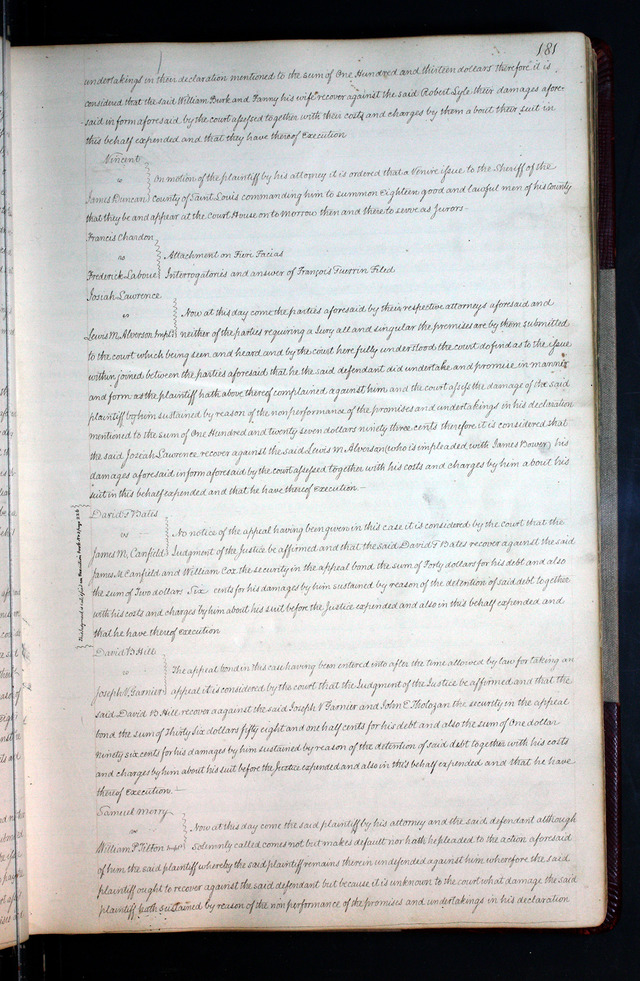 181
undertakings in their declaration mentioned to the sum of One Hundred and thirteen dollars therefore it is
considred that the said William Burk and Fanny his wife recover against the said Robert Lyle their damages afore-
said in form aforesaid by the court assessed together with their costs and charges by them about their suit in
this behalf expended and that they have thereof execution
Vincent
vs On motion of the plaintiff by his attorney it is ordered that a Venire issue to the Sheriff of the
James Duncan County of Saint Louis commanding him to summon Eighteen good and lawful men of his County
that they be and appear at the Court House on to morrow then and there to serve as Jurors-
Francis Chardon
vs Attachment on Fiere Facias
Frederick Laboue Interrogatories and answer of François Guerrin Filed
Josiah Lawrence
vs Now at this day come the parties aforesaid by their respective attorneys aforesaid and
Lewis M. Alverson Impld neither of the parties requiring a Jury all and singular the premises are by them submitted
to the court which being seen and heard and by the court here fully understood the court do find as to the issue
within joined between the parties aforesaid that he the said defendant did undertake and promise in manner
and form as the plaintiff hath above thereof complained against him and the court assess the damage of the said
plaintiff by him sustained by reason of the non performance of the promises and undertakings in his declaration
mentioned to the sum of One Hundred and twenty seven dollars ninety three cents therefore it is considered that
the said Josiah Lawrence recover against the said Lewis M. Alverson (who is impleaded with James Bower) his
damages aforesaid in form aforesaid by the court assessed together with his costs and charges by him about his
suit in this behalf expended and that he have thereof execution -
David T Bates
vs No notice of the appeal having been given in this case it is considered by the court that the
James M. Canfield Judgment of the Justice be affirmed and that the said David T Bates recover against the said
James M Canfield and William Cox the security in the appeal bond the sum of Forty dollars for his debt and also
the sum of Two dollars Six cents for his damages by him sustained by reason of the detention of said debt together
with his costs and charges by him about his suit before the Justice expended and also in this behalf expended and
that he have thereof execution
David B Hill
vs The appeal bond in this case having been entered into after the time allowed by law for taking an
Joseph V. Garnier appeal it is considered by the court that the Judgment of the Justice be affirmed and that the
said David B Hill recover against the said Joseph V Garnier and John E Tholozan the security in the appeal
bond the sum of Thirty Six dollars fifty eight and one half cents for his debt and also the sum of One dollar
Ninety six cents for his damages by him sustained by reason of the detention of said debt together with his costs
and charges by him about his suit before the Justice expended and also in this behalf expended and that he have
thereof execution. -
Samuel Merry
vs Now at this day come the said plaintiff by his attorney and the said defendant although
William P. Tilton Impld Solemnly called comes not but makes default nor hath he pleaded to the action aforesaid
of him the said plaintiff whereby the said plaintiff remains therein undefended against him wherefore the said
plaintiff ought to recover against the said defendant but because it is unknown to the court what damage the said
plaintiff hath sustained by reason of the non performance of the promises and undertakings in his declaration